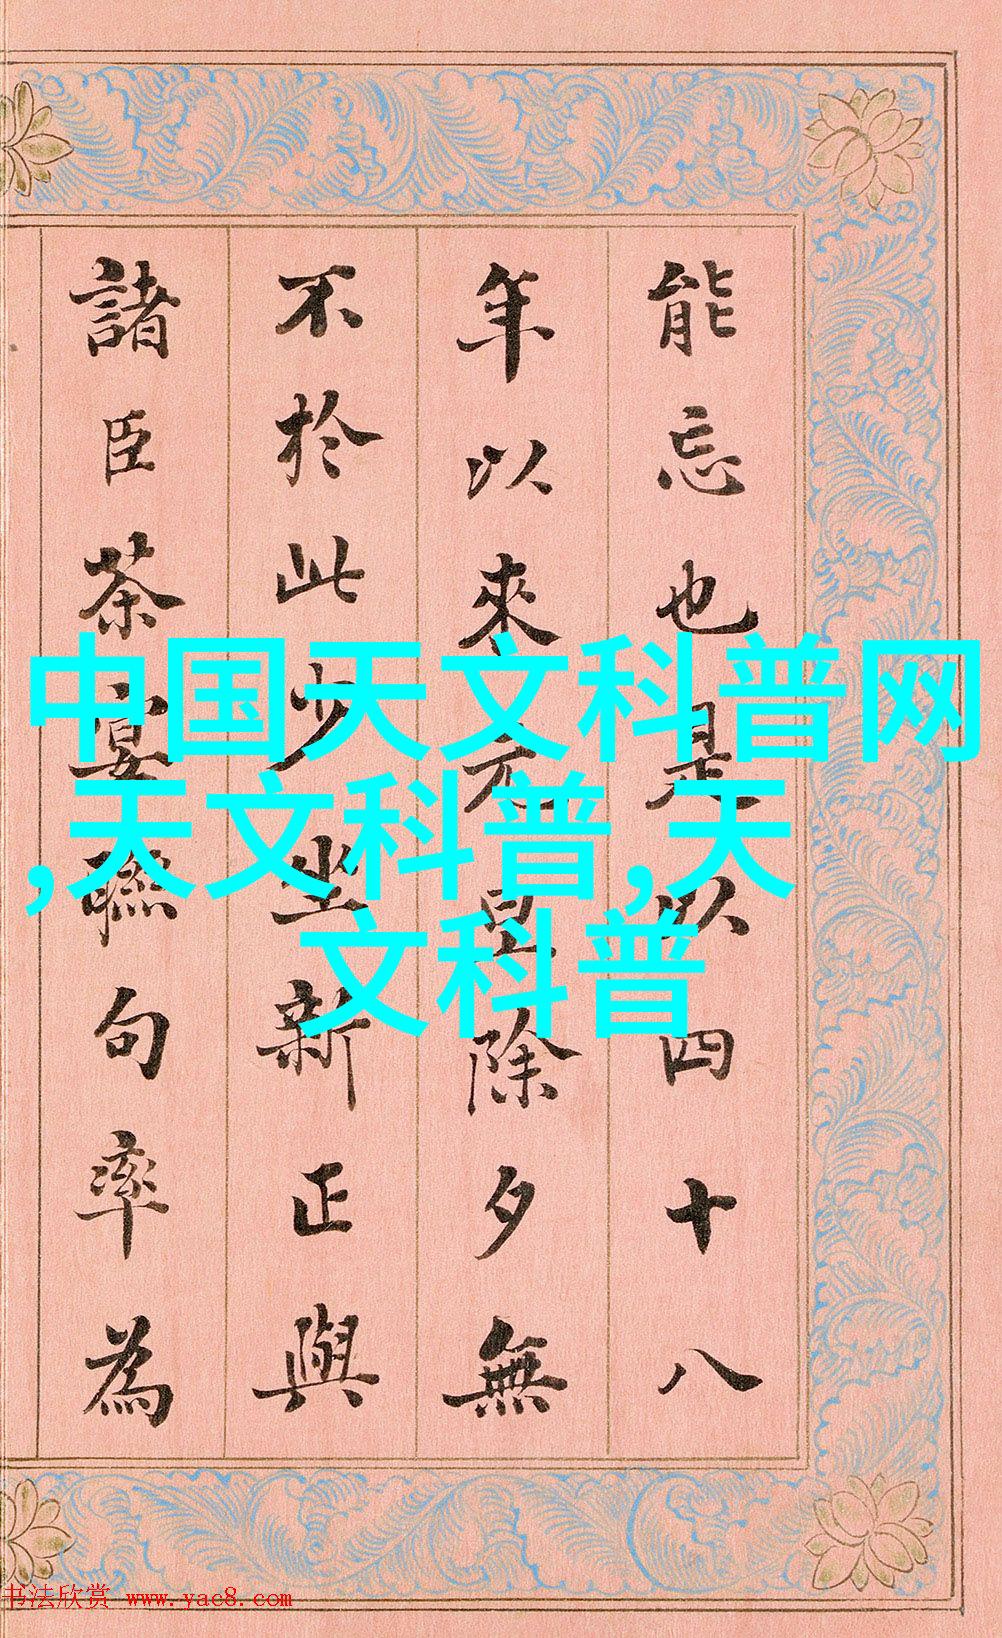 能忘也是以四十八
年以來元旦除夕無
不於此少坐新正與
諸臣茶宴聯句率為
中国天文科普网
,天文科普,天
文科普
书法欣赏 www.yac8.com